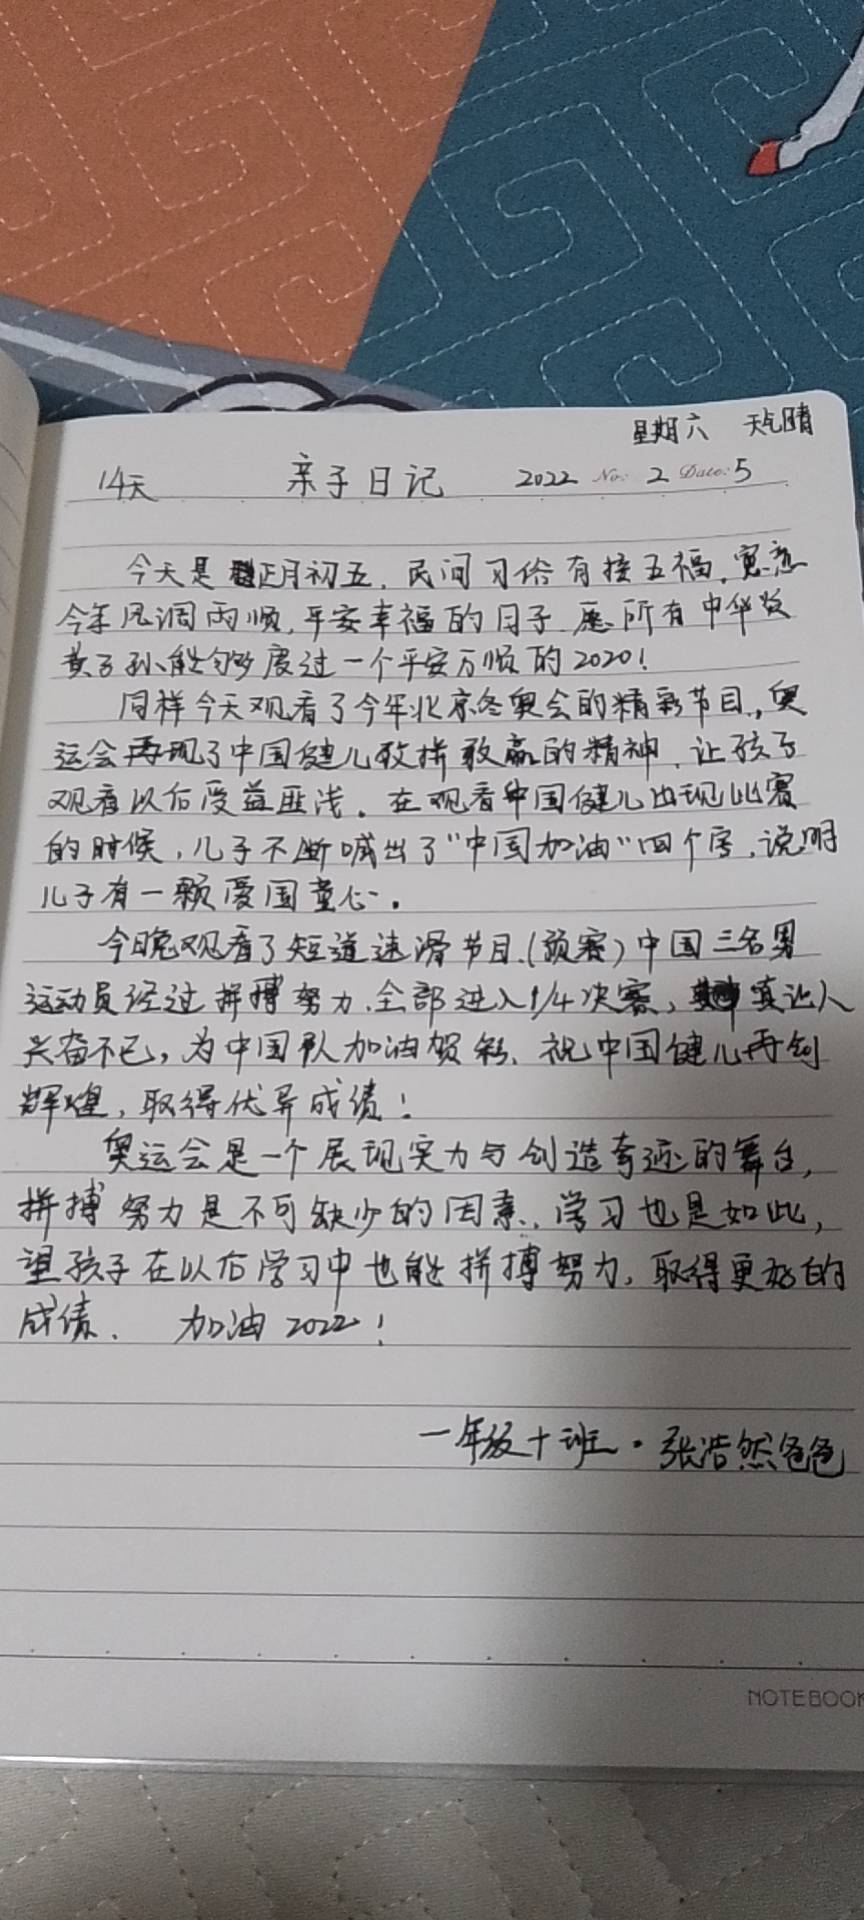 星期六 天气晴
14天 亲子日记 2022 No: 2 Date: 5
今天是正月初五，民间习俗有接五福，寓意
今年风调雨顺，平安幸福的日子，愿所有中华炎
黄子孙能够度过一个平安万顺的2020！
同样今天观看了今年北京冬奥会的精彩节目，奥
运会再现了中国健儿敢拼敢赢的精神，让孩子
观看以后受益匪浅。在观看中国健儿出现比赛
的时候，儿子不断喊出了“中国加油”四个字，说明
儿子有一颗爱国童心。
今晚观看了短道速滑节目，(预赛)中国三名男
运动员经过拼搏努力，全部进入1/4决赛，真让人
兴奋不已，为中国队加油贺彩，祝中国健儿再创
辉煌，取得优异成绩！
奥运会是一个展现实力与创造奇迹的舞台，
拼搏努力是不可缺少的因素，学习也是如此，
望孩子在以后学习中也能拼搏努力，取得更好的
成绩。 加油2022！
一年级十班·张浩然爸爸
NOTEBOOK